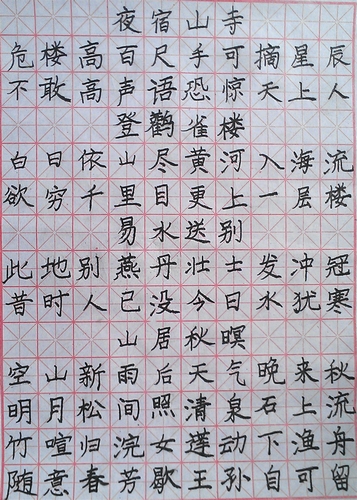 夜宿山寺
危楼高百尺手可摘星辰
不敢高声语恐惊天上人
登鹳雀楼
白日依山尽黄河入海流
欲穷千里目更上一层楼
易水送别
此地别燕丹壮士发冲冠
昔时人已没今日水犹寒
山居秋暝
空山新雨后天气晚来秋
明月松间照清泉石上流
竹喧归浣女莲动下渔舟
随意春芳歇王孙自可留